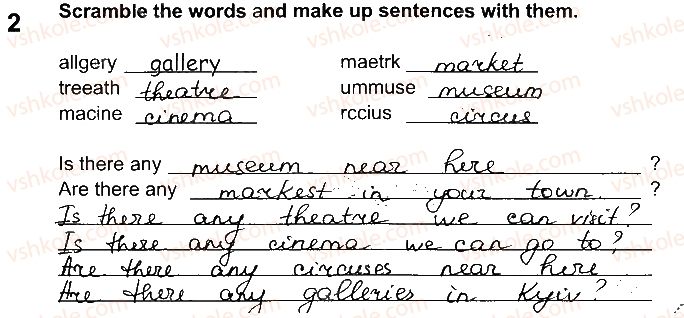 2 Scramble the words and make up sentences with them.
allgery gallery maetrk market
treeath theatre ummuse museum
macine cinema rccius circus
Is there any museum near here ?
Are there any markest in your town. ?
Is there any theatre we can visit?
Is there any cinema we can go to?
Are there any circuses near here
Are there any galleries in Kyiv?